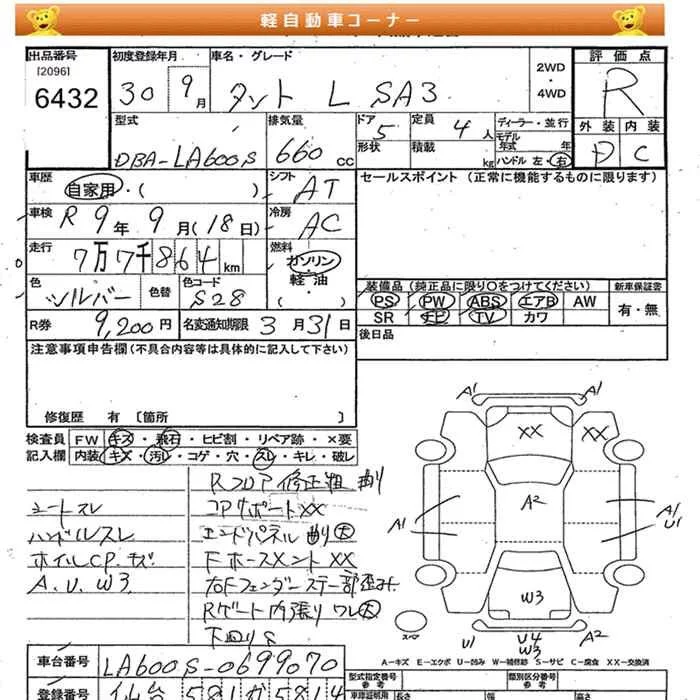 軽自動車コーナー
出品番号 初度登録年月 車名・グレード 評価点
[2096]
6432 30 9月 タント L SA3 2WD・4WD R
型式 排気量 ドア 定員 ディーラー・並行 外装 内装
DBA-LA600S 660cc 5 4人 モデル年式 年 D C
形状 積載 kg ハンドル 左・右
車歴 自家用・( ) シフト AT セールスポイント (正常に機能するものに限ります)
車検 R9年9月(18日) 冷房 AC
走行 7万7千864km 燃料 ガソリン・軽油・( )
色 シルバー 色替 色コード S28
装備品 (純正品に限り〇をつけてください) 新車保証書
PS PW ABS エアB AW 有・無
SR ナビ TV カワ
R券 9,200円 名変通知期限 3月31日 後日品
注意事項申告欄(不具合内容等は具体的に記入して下さい)
修復歴 有 [箇所 ]
検査員記入欄 FW キズ・飛石・ヒビ割・リペア跡・×要
内装 キズ・汚し・コゲ・穴・スレ・キレ・破レ
Rフロア修正粗 割
シートスレ CPサポートXX
ハンドルスレ エンドパネル 割大
ホイルCP.キズ FホースメントXX
A.U.W3 右Fフェンダーステー部歪み
Rゲート内張りワレ大
下回りS
A1 A1
XX XX
A2
A1 A1 U1
W3
スペア
U1 U4 W3 A2
A―キズ E―エクボ U―凹み W―補修跡 S―サビ C―腐食 XX―交換済
車台番号 LA600S-0699070
型式指定番号 参考 類別区分番号 参考
登録番号 仙台 581 か 5814
長さ 幅 高さ